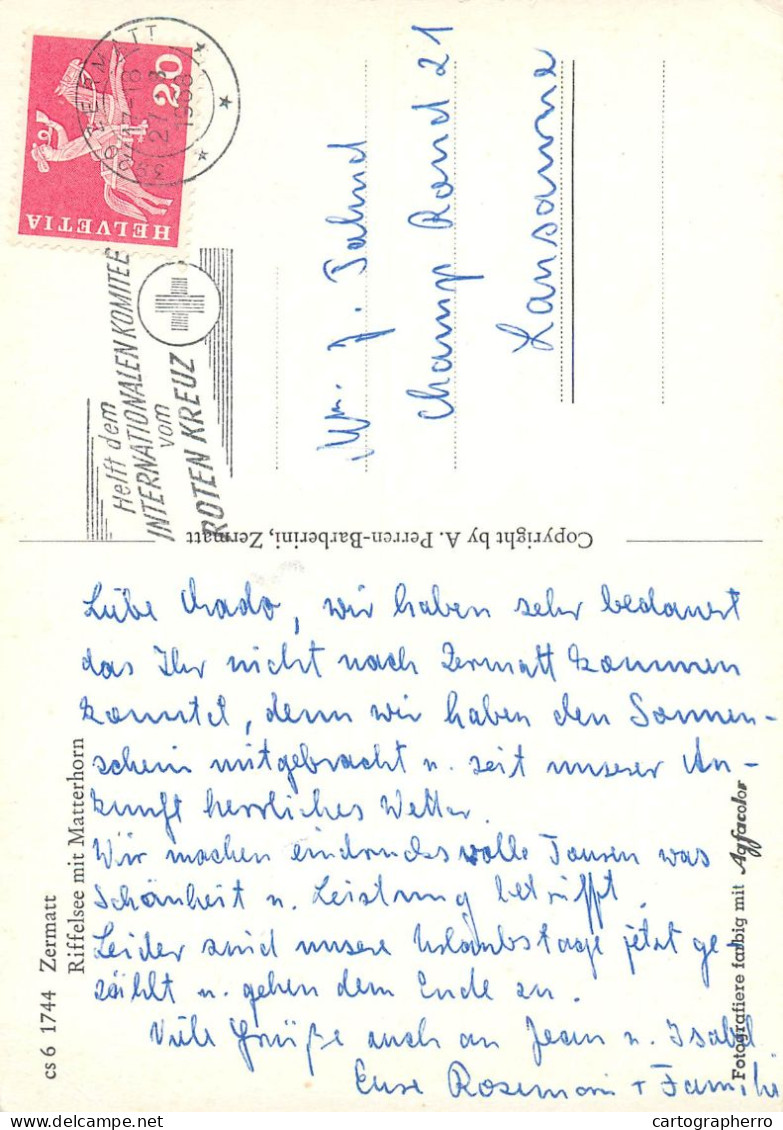 HELVETIA
20
3920 ZERMATT
17-18
1968
Helft dem
INTERNATIONALEN KOMITEE
vom
ROTEN KREUZ
J.
Champ Rond 21
Lausanne
Copyright by A. Perren-Barberini, Zermatt
Liebe Mado, wir haben sehr bedauert
das Ihr nicht nach Zermatt kommen
konntet, denn wir haben den Sonnen-
schein mitgebracht u. seit unserer An-
kunft herrliches Wetter.
Wir machen eindrucksvolle Touren was
Schönheit u. Leistung betrifft.
Leider sind unsere Urlaubstage jetzt ge-
zählt u. gehen dem Ende zu.
Viele Grüße auch an Jean u. Isabel
Eure Rosemarie + Familie
cs 6 1744 Zermatt
Riffelsee mit Matterhorn
Fotografiere farbig mit Agfacolor
cartographerro